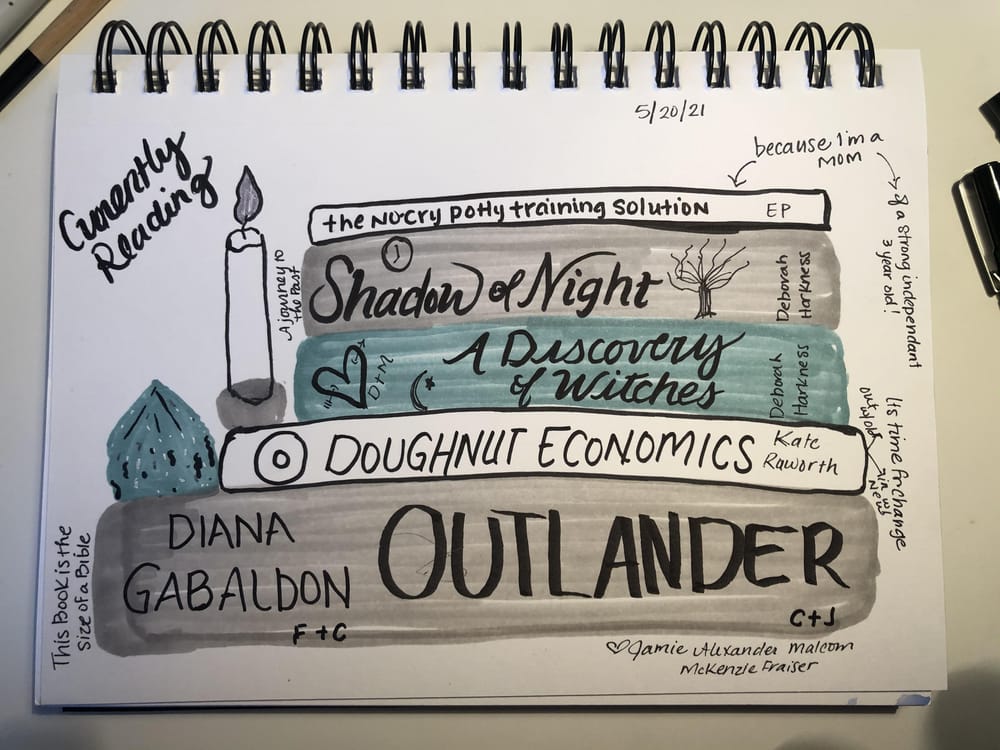 5/20/21
Currently
Reading
because I'm a
MOM
& a strong independant
3 year old!
the No-cry potty training solution EP
A journey to
the Past
Shadow of Night
Deborah
Harkness
D+M
A Discovery
of Witches
Deborah
Harkness
DOUGHNUT ECONOMICS
Kate
Raworth
Its time for change
out w/ old
in w/
New
DIANA
GABALDON
OUTLANDER
F+C
C+J
This Book is the
size of a Bible
Jamie Alexander Malcom
McKenzie Fraiser